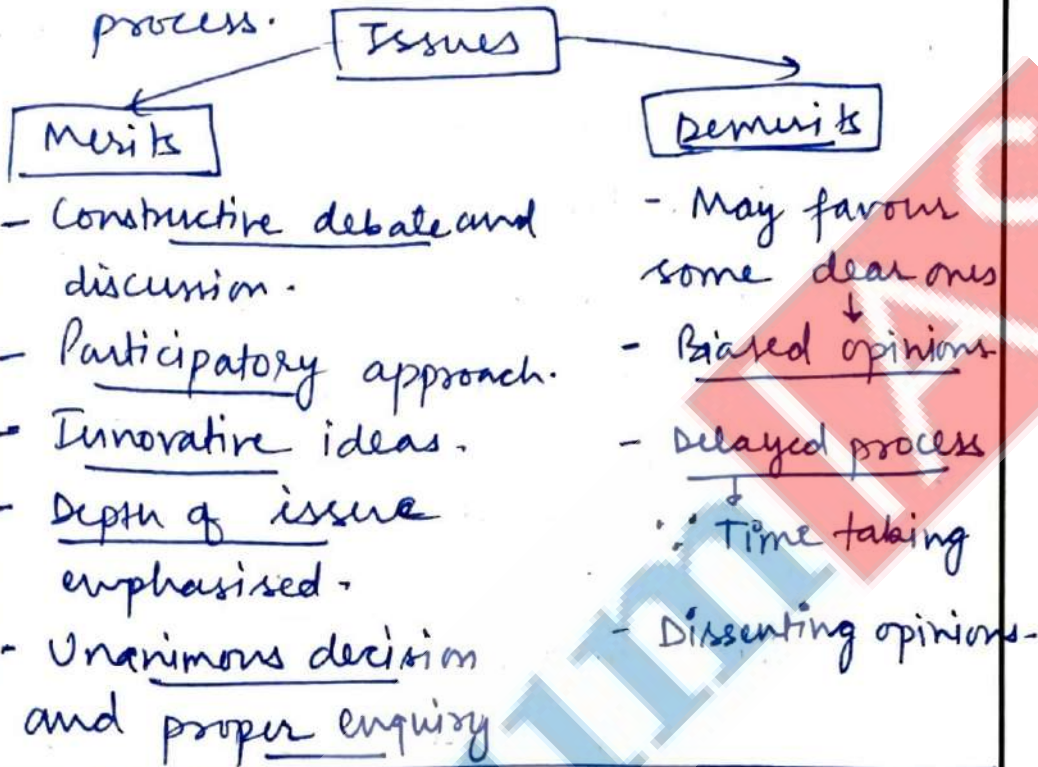 process.
Issues
Merits
Demerits
- Constructive debate and
discussion.
- Participatory approach.
- Innovative ideas.
- Depth of issue
emphasised.
- Unanimous decision
and proper enquiry
- May favour
some dear ones
↓
- Biased opinions
- Delayed process
↓
∵ Time taking
- Dissenting opinions.